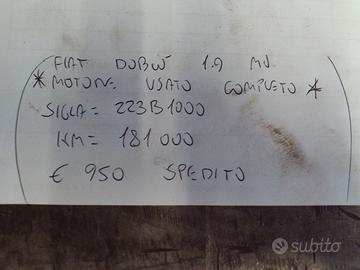 FIAT DOBLÒ 1.9 MJ
* MOTORE USATO COMPLETO *
SIGLA = 223B1000
KM = 181 000
€ 950 SPEDITO
subito